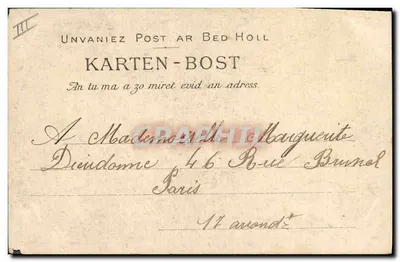 III
UNVANIEZ POST AR BED HOLL
KARTEN-BOST
An tu ma a zo miret evid an adress.
A Mademoiselle Marguerite
Dieudonne 46 Rue Brunel
Paris
17 arrondt